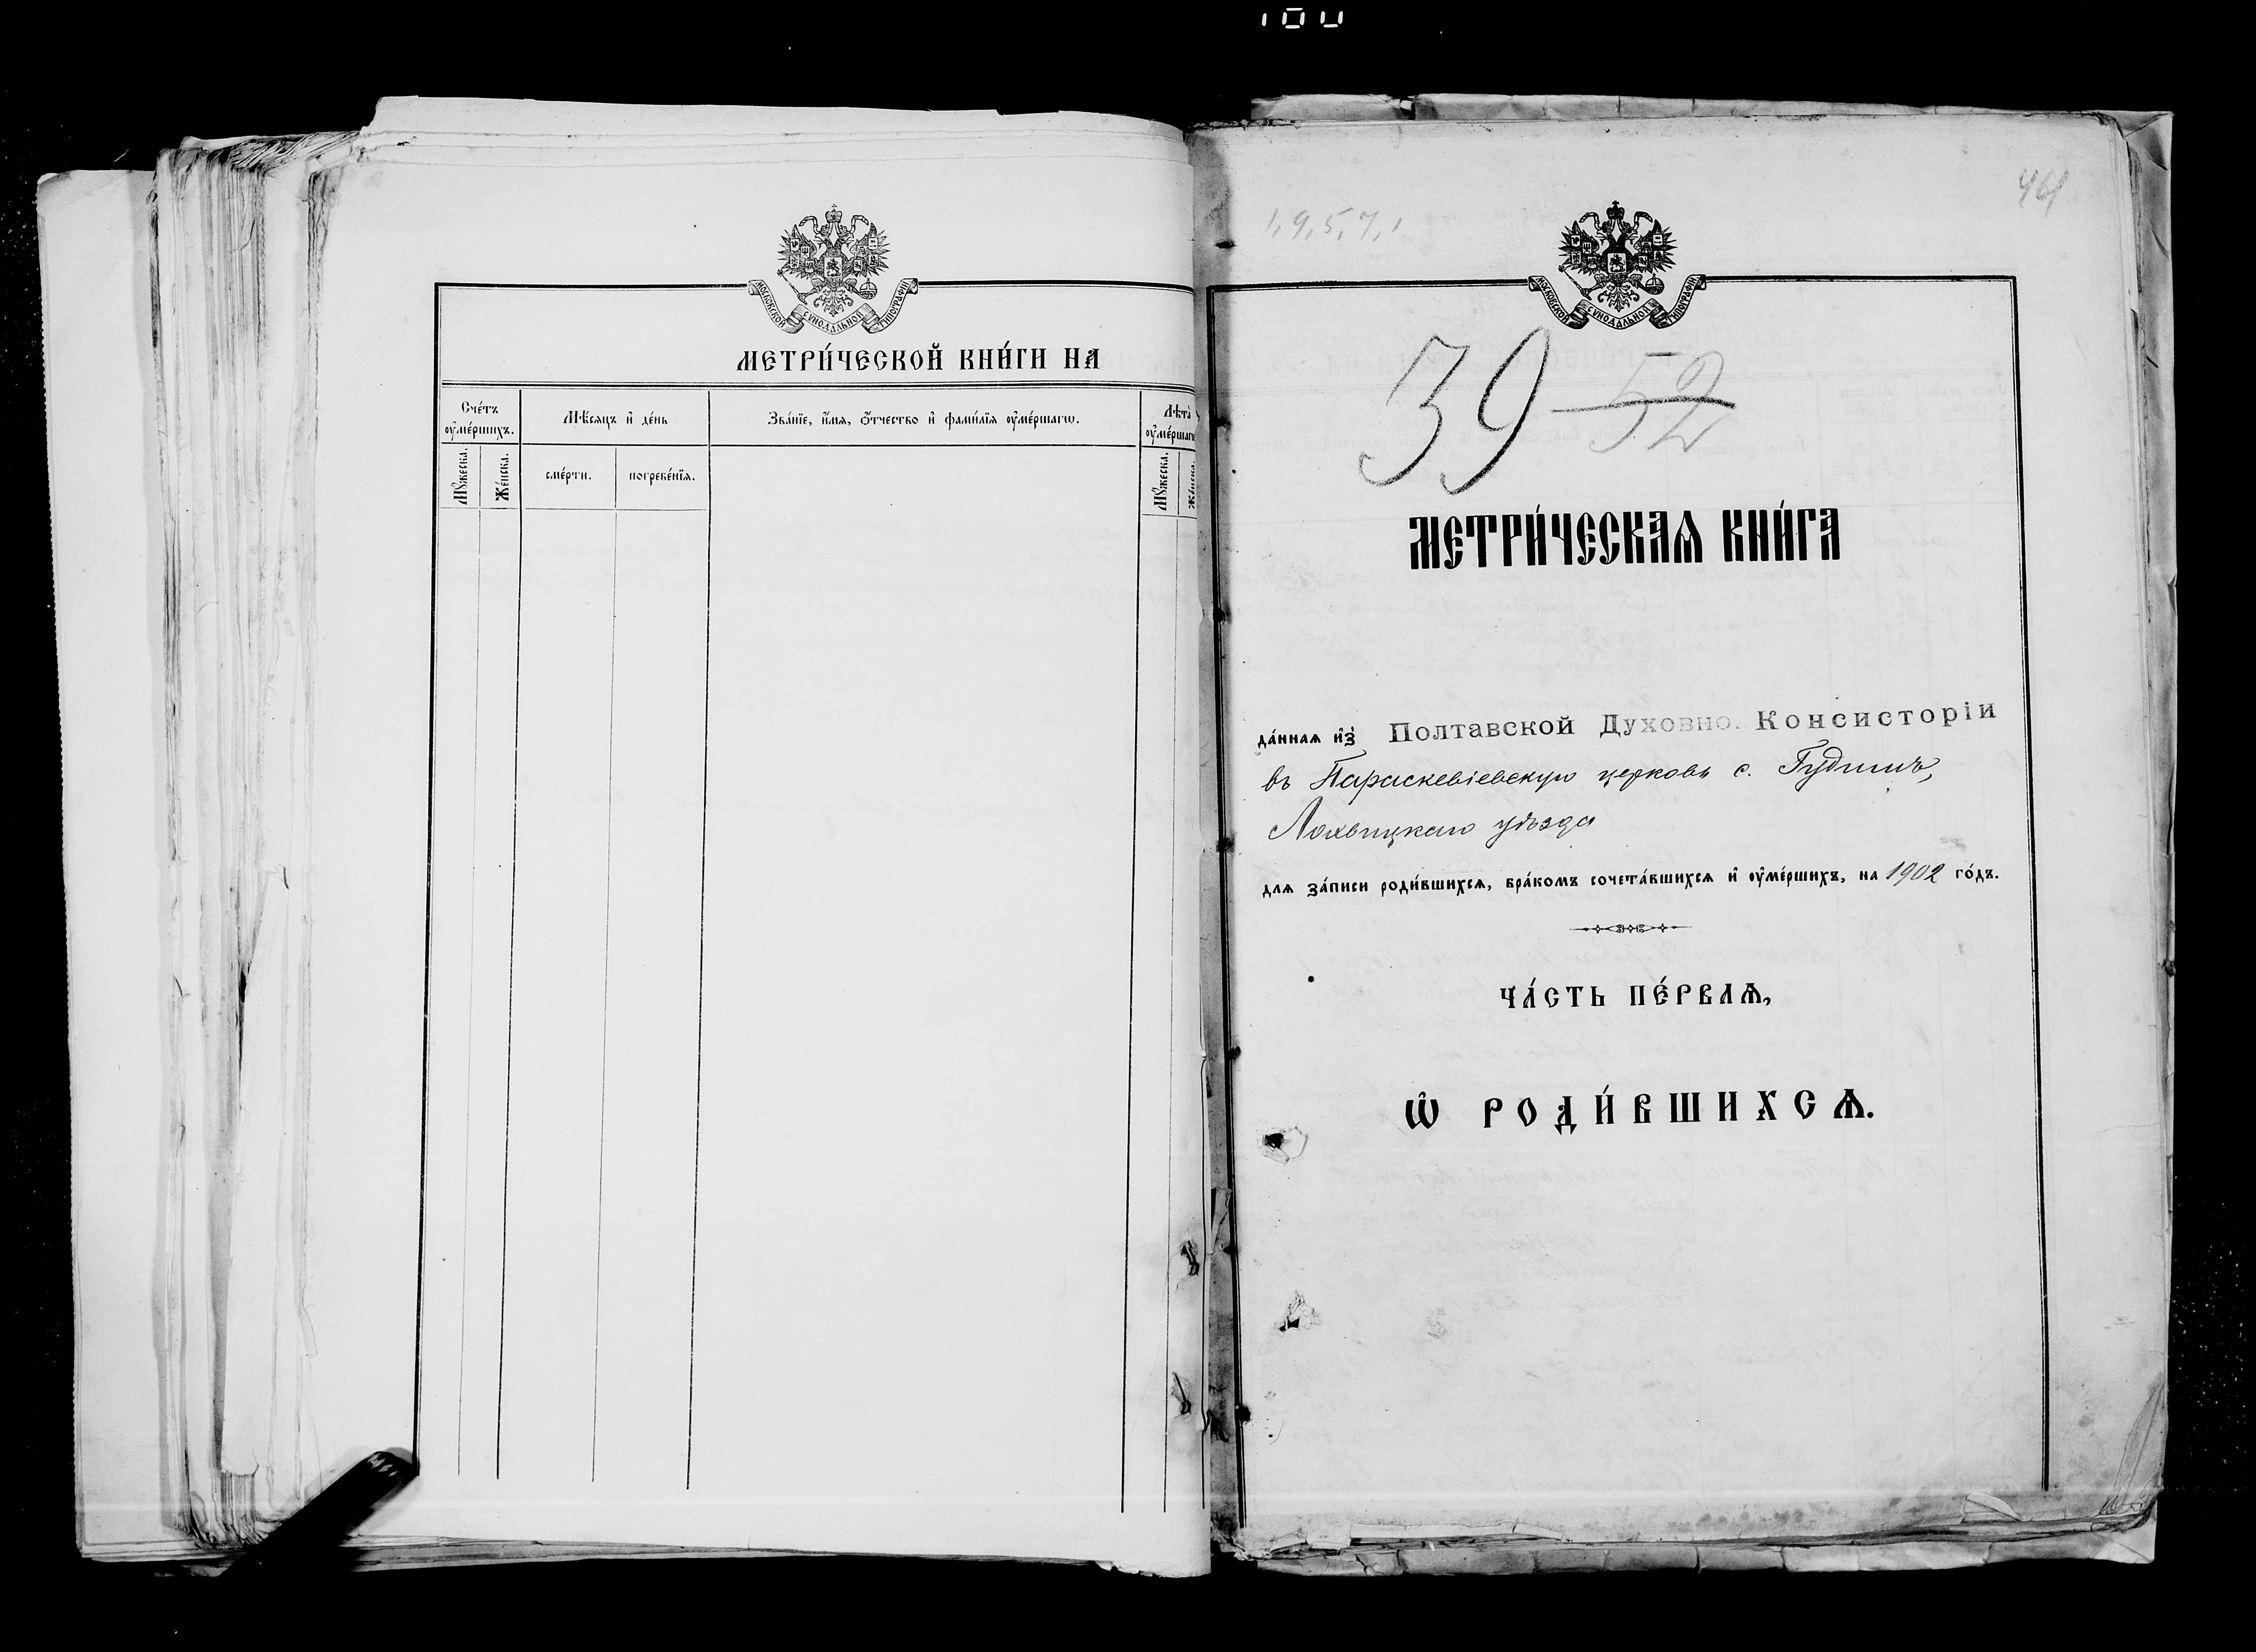 МОСКОВСКОЙ СѴНОДАЛЬНОЙ ТИПОГРАФІИ
МЕТРИ́ЧЕСКОЙ КНИ́ГИ НА
Сче́тъ ᲂу҆ме́ршихъ.
Мѣ́сяцъ и҆ де́нь
Зва́нїе, и҆́мя, ѻ҆́тчество и҆ фами́лїя ᲂу҆ме́ршагѡ.
Лѣта̀
Мꙋ́жеска.
Же́нска.
сме́рти.
погребе́нїя.
Мꙋ́жеска.
1,9,5,7,1
МОСКОВСКОЙ СѴНОДАЛЬНОЙ ТИПОГРАФІИ
39 52
МЕТРИ́ЧЕСКАѦ КНИ́ГА
да́ннаѧ и҆з̾ Полтавской Духовно. Консисторіи
въ Параскевіевскую церковь с.
Лохвицкаго уѣзда
длѧ за́писи роди́вшихсѧ, бра́комъ сочета́вшихсѧ и҆ ᲂу҆ме́ршихъ, на 1902 го́дъ.
ЧА́СТЬ ПЕ́РВАѦ,
Ѽ РОДИ́ВШИХСѦ.